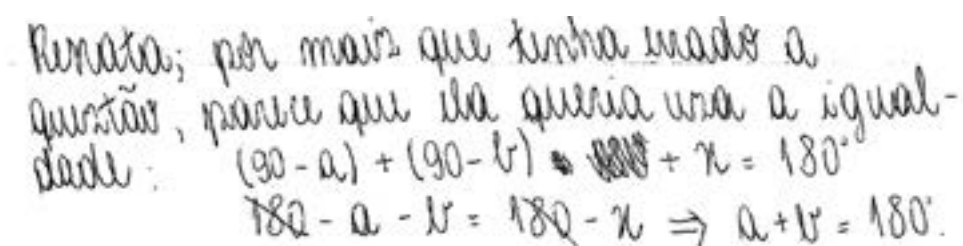 Renata; por mais que tenha errado a
questão, parece que ela queria usa a igual-
dade: (90 - a) + (90 - b) + x = 180°
180 - a - b = 180 - x ⇒ a + b = 180°.